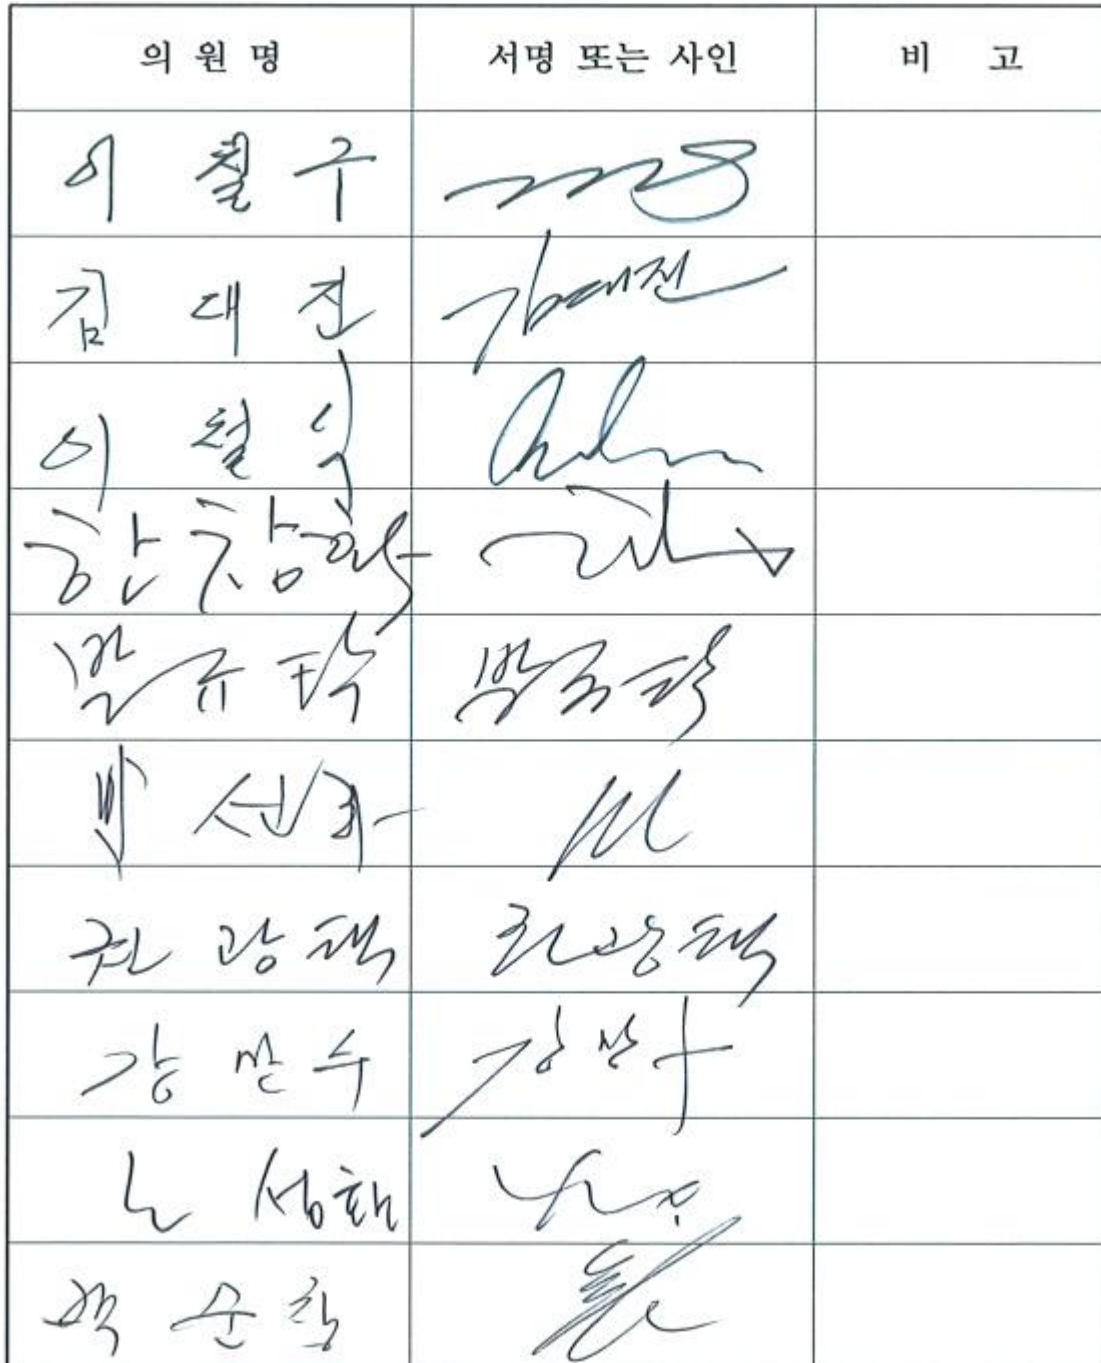 의 원 명 서명 또는 사인 비 고
이 칠 구
김 대 진 김대진
이 철 식
한 창 화
박 규 탁 박규탁
박 선 하
권 광 택 권광택
강 만 수 강만수
노 성 환
백 순 창